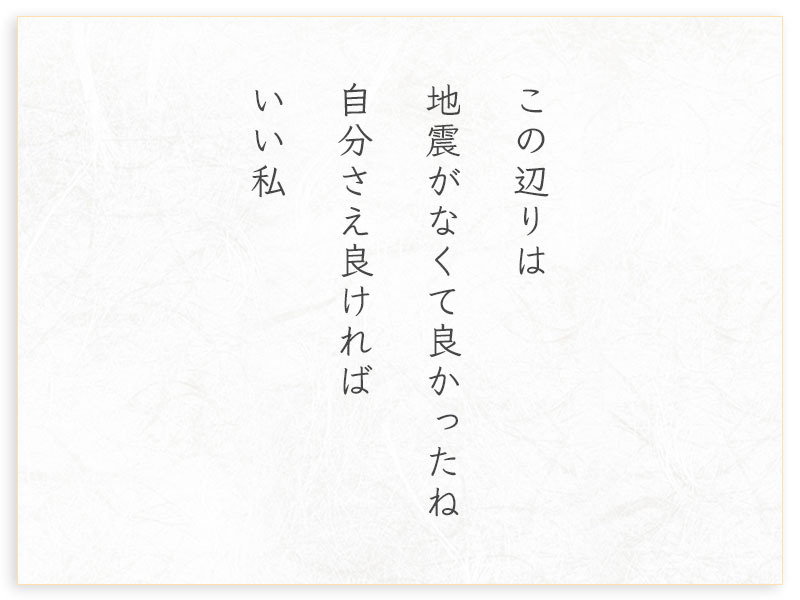 この辺りは
地震がなくて良かったね
自分さえ良ければ
いい私